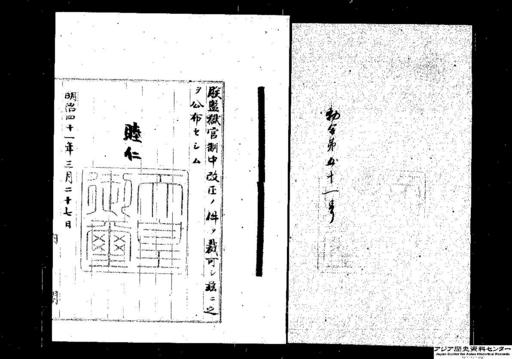 勅令第五十一號
朕監獄官制中改正ノ件ヲ裁可シ玆ニ之
ヲ公布セシム
睦仁
天皇
御璽
明治四十一年三月二十七日
アジア歴史資料センター
Japan Center for Asian Historical Records